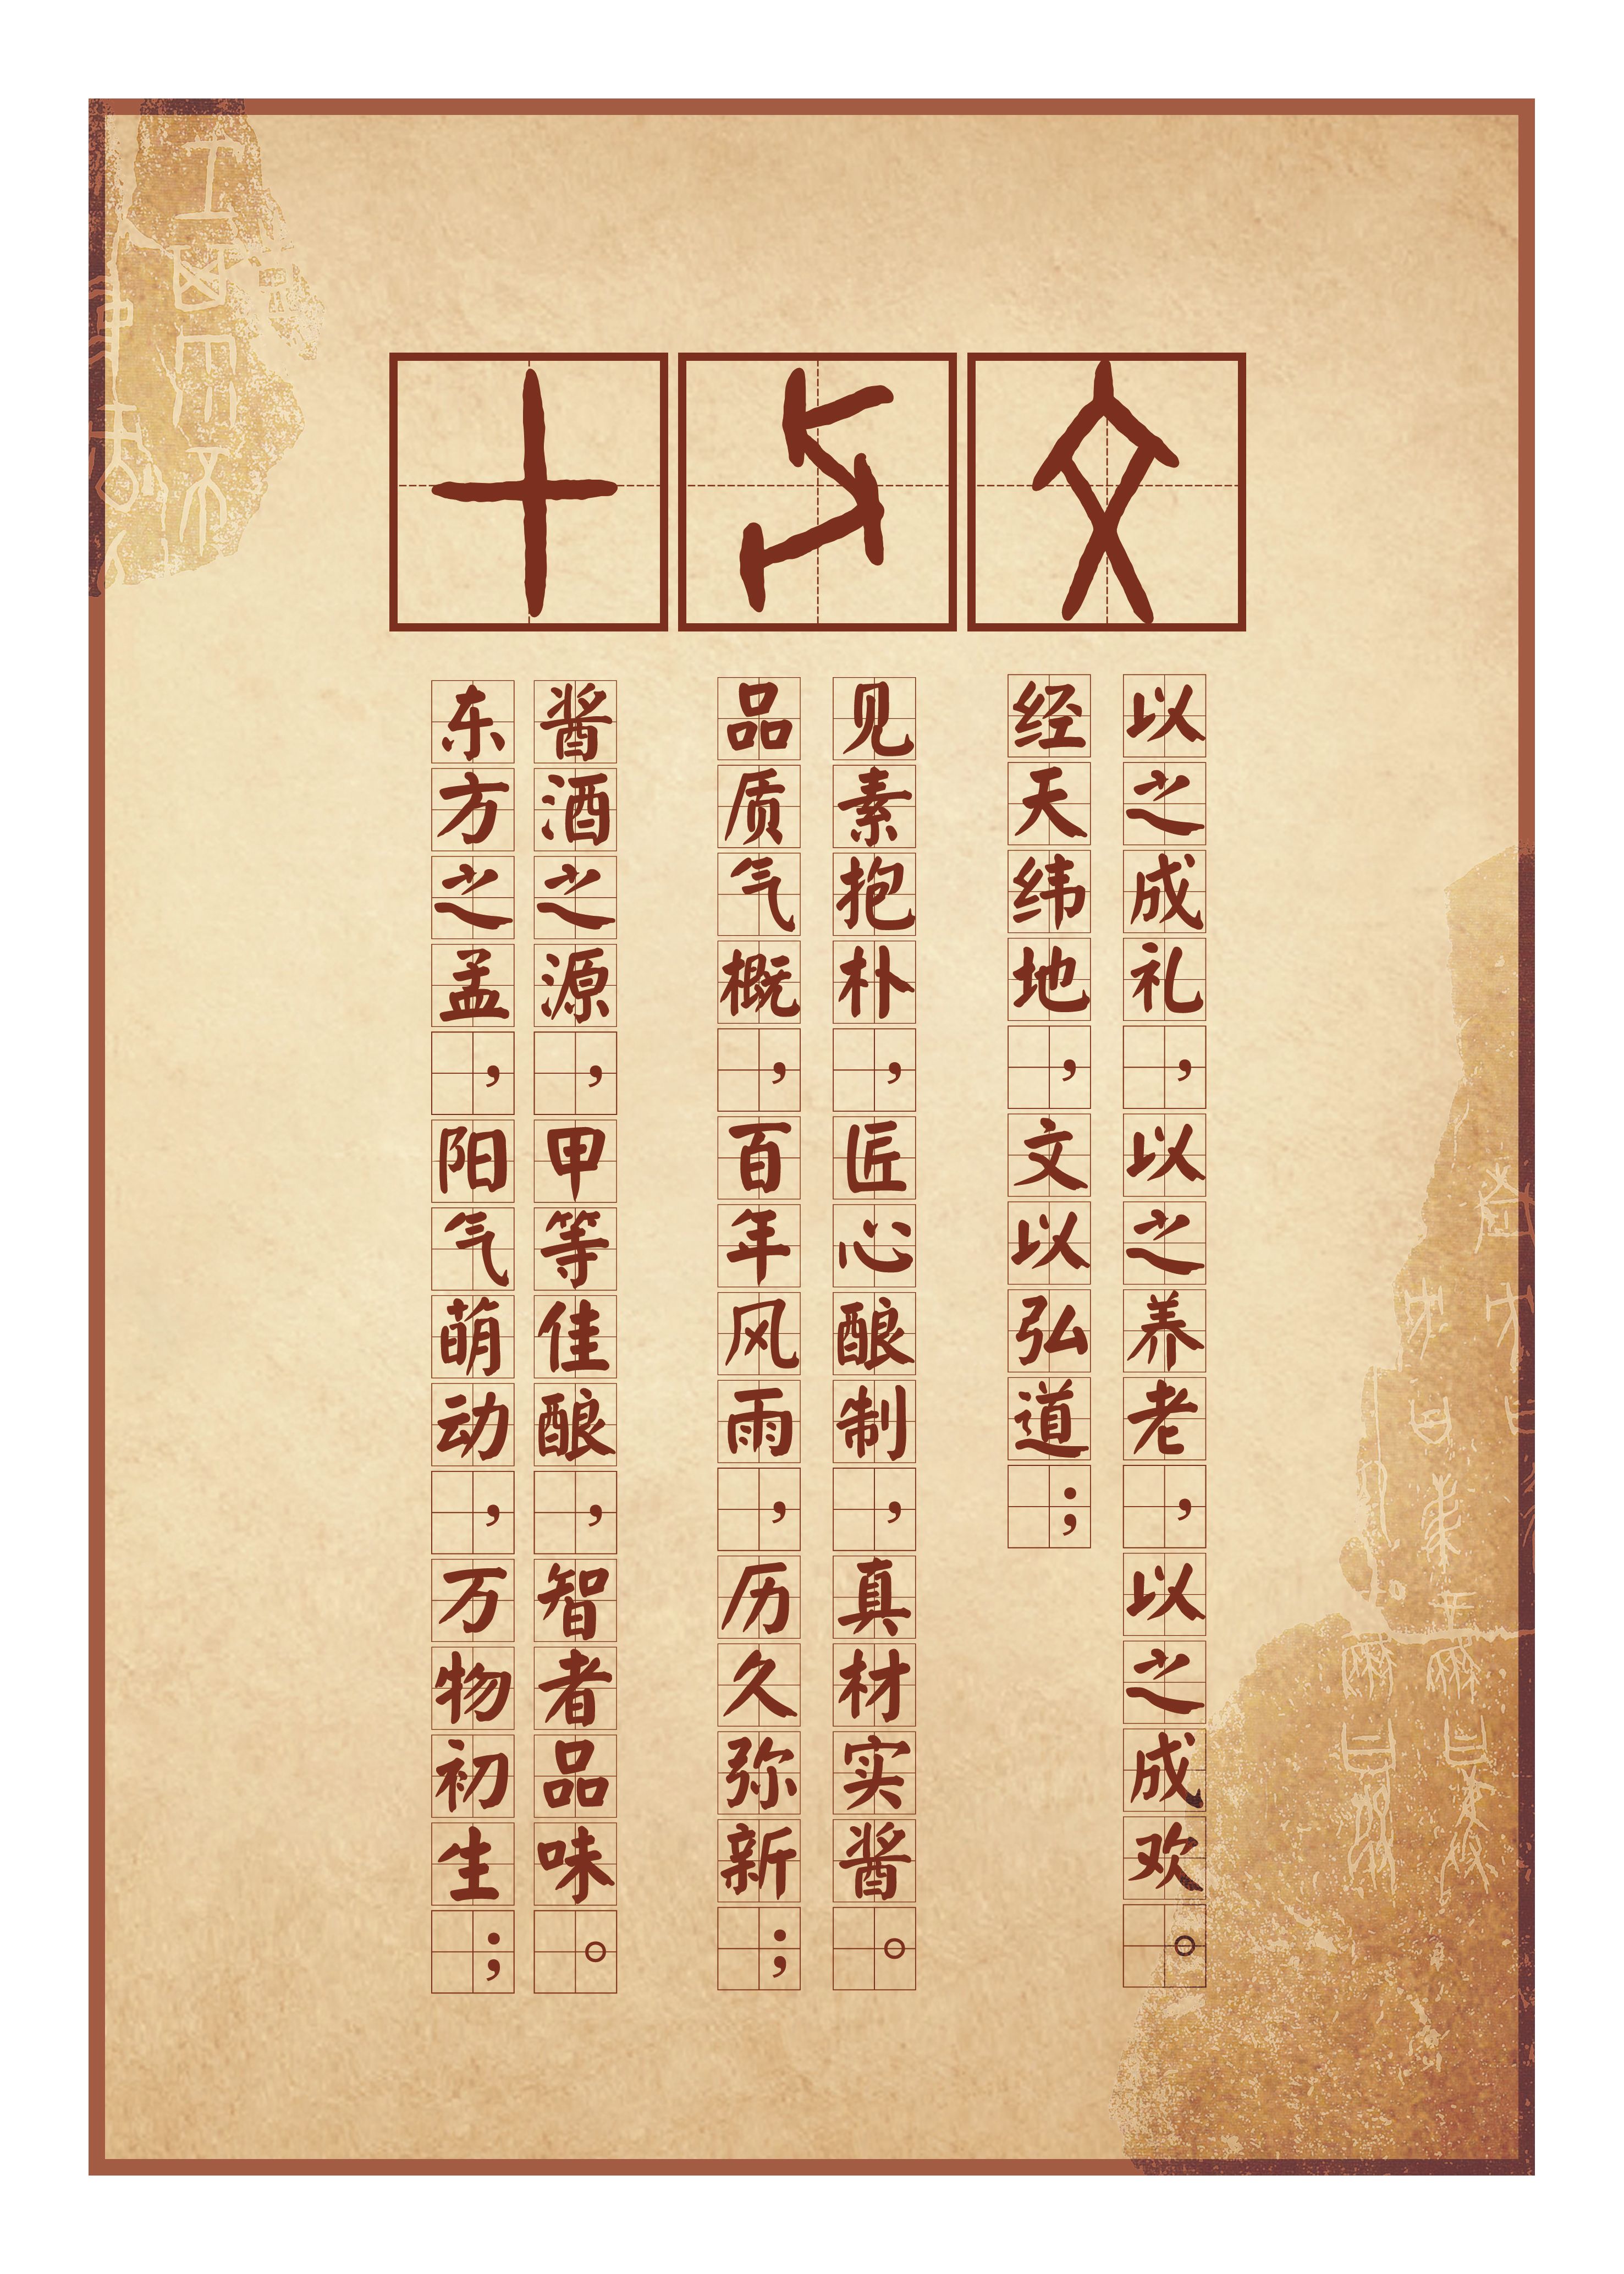 甲骨文
东方之孟，阳气萌动，万物初生；
酱酒之源，甲等佳酿，智者品味。
品质气概，百年风雨，历久弥新；
见素抱朴，匠心酿制，真材实酱。
经天纬地，文以弘道；
以之成礼，以之养老，以之成欢。